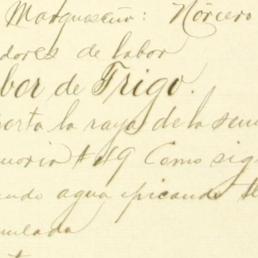 Marquaseño: Norcero
dores de labor
bor de Trigo.
porta la raya de la sem
moria #49 Como sig
ando agua ipicando
mulada